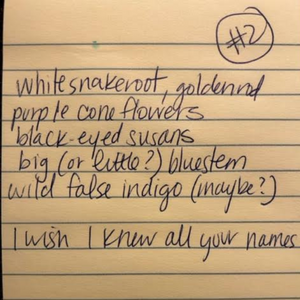 #2
white snakeroot, goldenrod
purple coneflowers
black-eyed susans
big (or little?) bluestem
wild false indigo (maybe?)
I wish I knew all your names